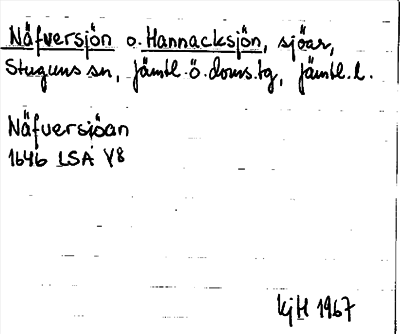 Näfversjön o. Hannacksjön, sjöar,
Stuguns sn, Jämtl. ö. doms.tg, Jämtl. l.
Näfversjöan
1646 LSA Y8
KjH 1967